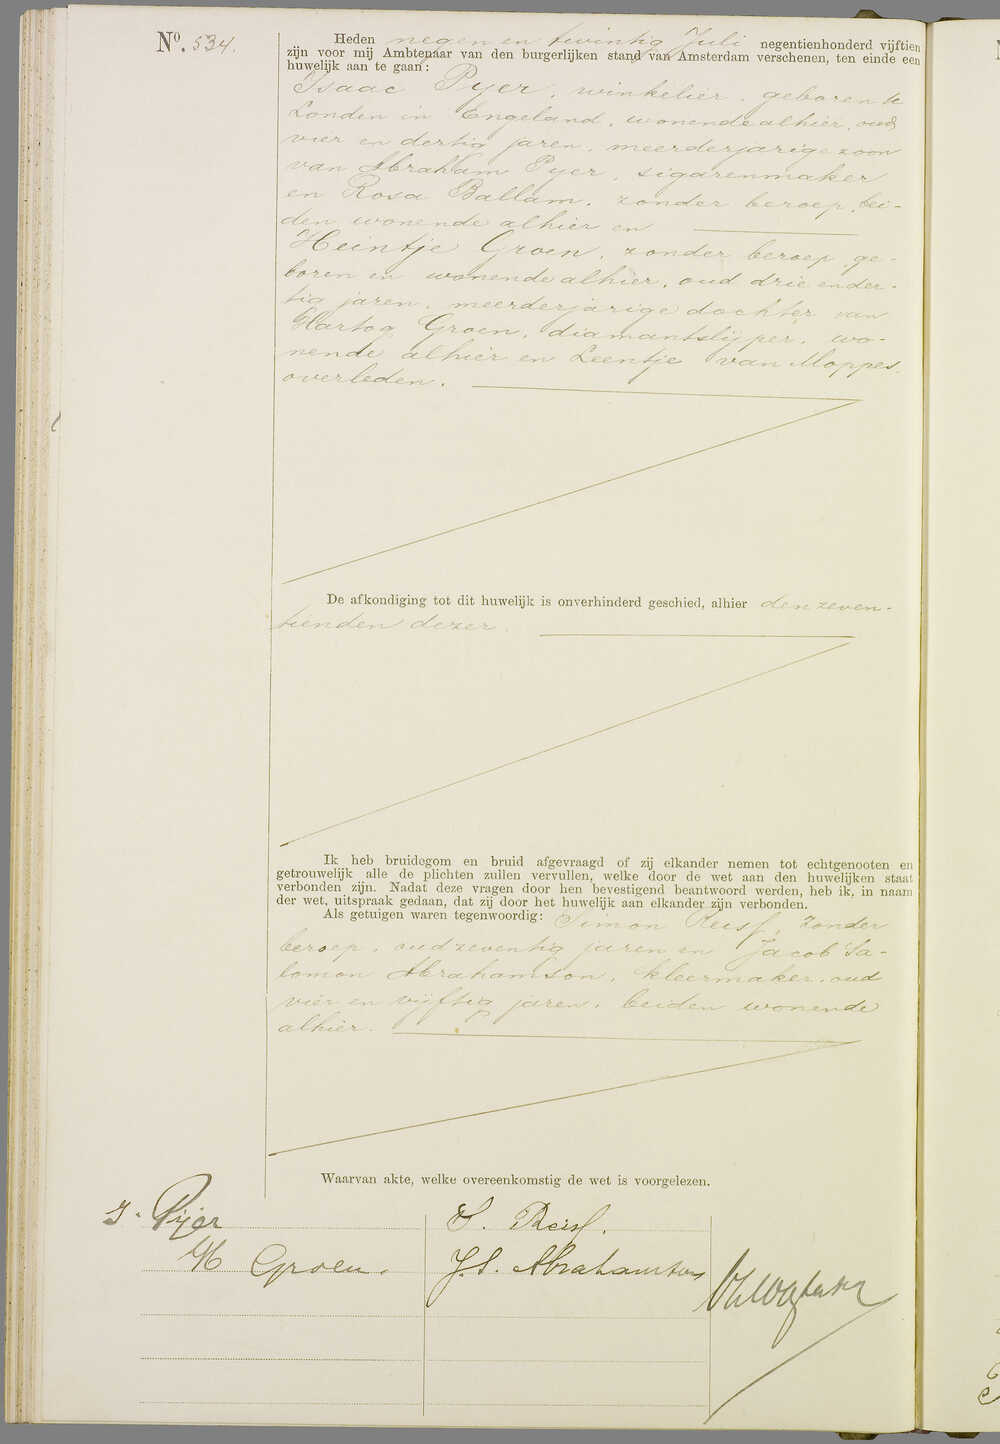 No. 534.
Heden negen en twintig Juli negentienhonderd vijftien
zijn voor mij Ambtenaar van den burgerlijken stand van Amsterdam verschenen, ten einde een
huwelijk aan te gaan:
Isaac Pyer, winkelier, geboren te
Londen in Engeland, wonende alhier, oud
vier en dertig jaren, meerderjarige zoon
van Abraham Pyer, sigarenmaker
en Rosa Ballam, zonder beroep, bei-
den wonende alhier en
Heintje Groen, zonder beroep, ge-
boren en wonende alhier, oud drie en der-
tig jaren, meerderjarige dochter van
Hartog Groen, diamantslijper, wo-
nende alhier en Leentje van Moppes,
overleden.
De afkondiging tot dit huwelijk is onverhinderd geschied, alhier den zeven-
tienden dezer.
Ik heb bruidegom en bruid afgevraagd of zij elkander nemen tot echtgenooten en
getrouwelijk alle de plichten zullen vervullen, welke door de wet aan den huwelijken staat
verbonden zijn. Nadat deze vragen door hen bevestigend beantwoord werden, heb ik, in naam
der wet, uitspraak gedaan, dat zij door het huwelijk aan elkander zijn verbonden.
Als getuigen waren tegenwoordig: Simon Reisf, zonder
beroep, oud zeventig jaren en Jacob Sa-
lomon Abrahamson, kleermaker, oud
vier en vijftig jaren, beiden wonende
alhier.
Waarvan akte, welke overeenkomstig de wet is voorgelezen.
I. Pijer S. Reisf.
H Groen. J. S. Abrahamson